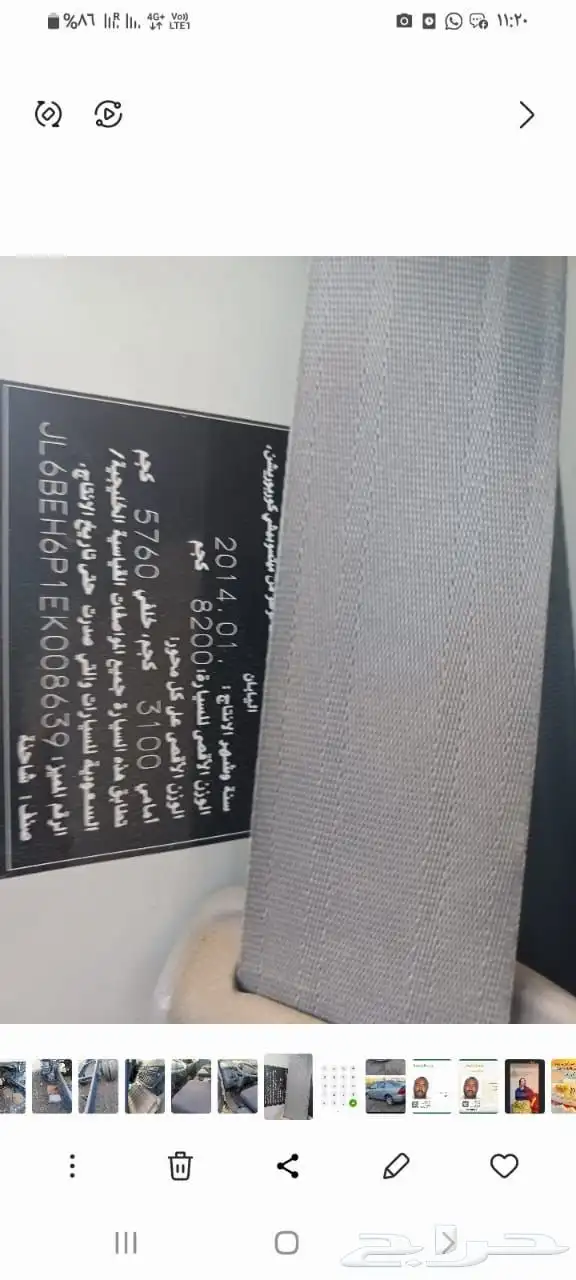 %٨٦ R 4G+ Vo) LTE1 ١١:٢٠
ميتسوبيشي كوربوريشن،
اليابان
سنة وشهر الانتاج: 2014.01.
الوزن الأقصى للسيارة: 8200 كجم
الوزن الأقصى على كل محور:
أمامي 3100 كجم، خلفي 5760 كجم
تطابق هذه السيارة جميع المواصفات القياسية الخليجية/
السعودية للسيارات والتي صدرت حتى تاريخ الانتاج.
الرقم المميز: JL6BEH6P1EK008639
صنف: شاحنة
حراج